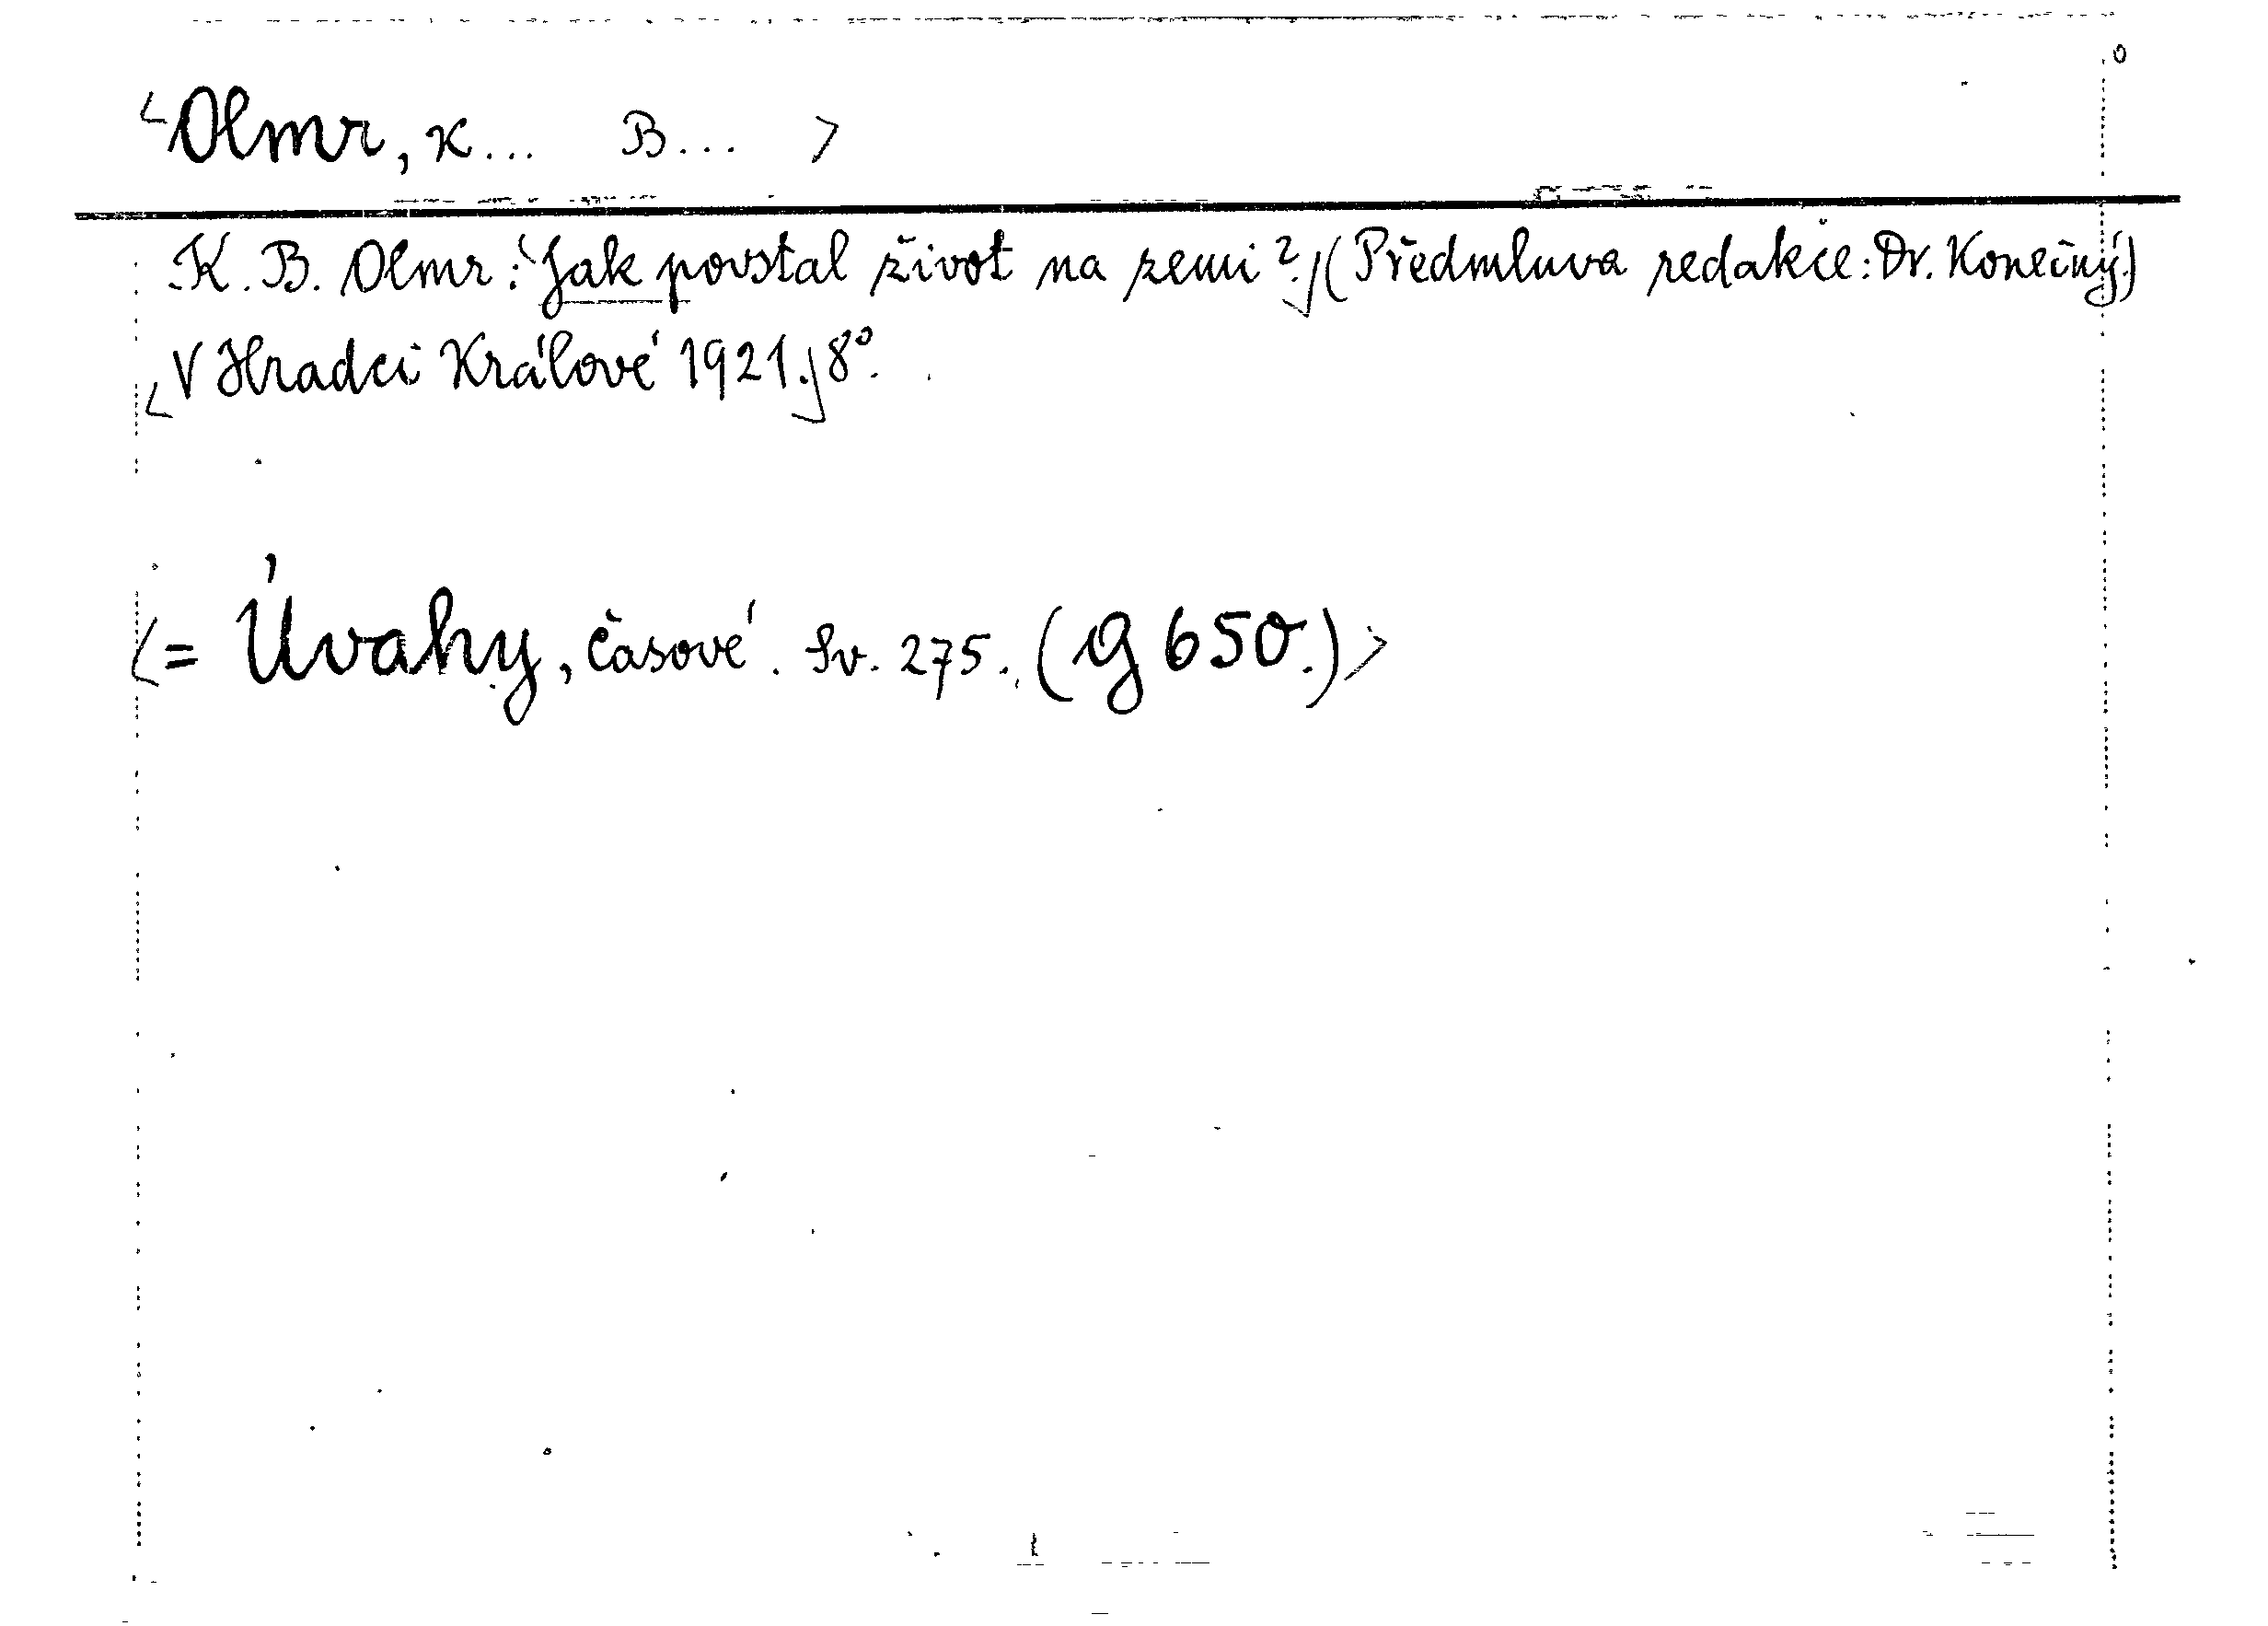 <Olmr, K... B... >
K. B. Olmr: Jak povstal život na zemi? (Předmluva redakce: Dr. Konečný.)
V Hradci Králové 1921. 8°.
<= Úvahy, časové. Sv. 275. (g 650.)>